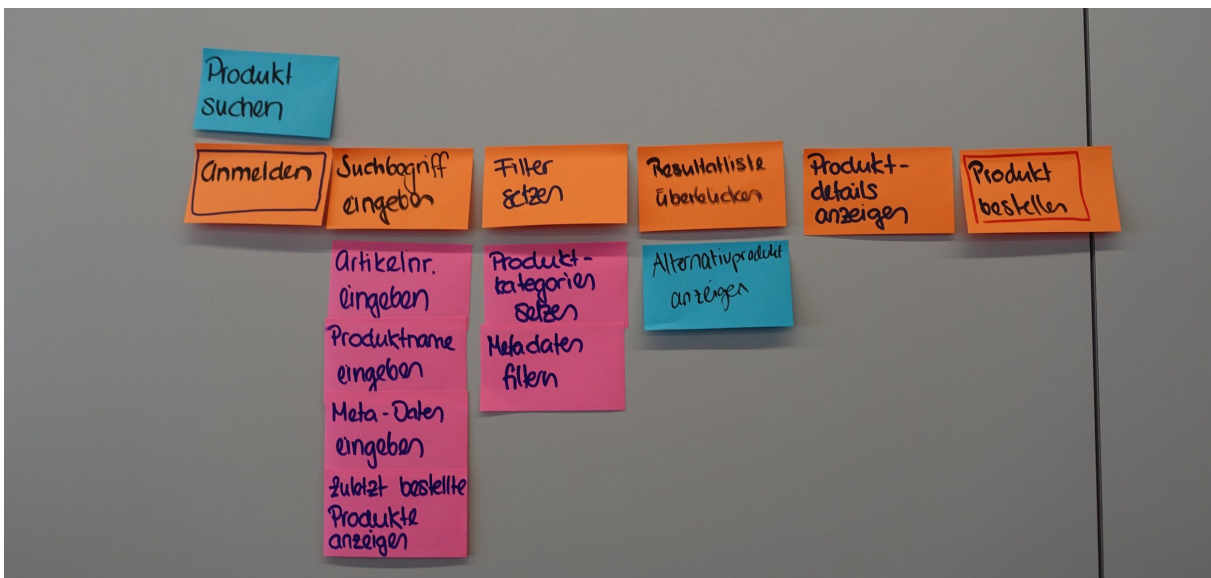 Produkt
suchen
anmelden
Suchbegriff
eingeben
Filter
setzen
Resultatliste
überblicken
Produkt-
details
anzeigen
Produkt
bestellen
Artikelnr.
eingeben
Produktname
eingeben
Meta-Daten
eingeben
zuletzt bestellte
Produkte
anzeigen
Produkt-
kategorien
setzen
Metadaten
filtern
Alternativprodukt
anzeigen